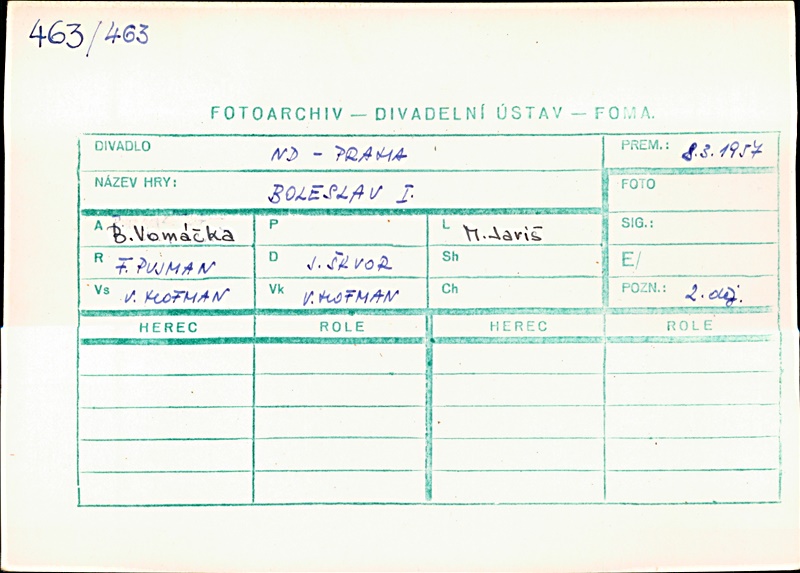 463/463
FOTOARCHIV — DIVADELNÍ ÚSTAV — FOMA.
DIVADLO ND - PRAHA PREM.: 8.3.1957
NÁZEV HRY: BOLESLAV I. FOTO
A B. Vomáčka P L M. Jariš SIG.:
R F. PUJMAN D J. ŠKVOR Sh E/
Vs V. HOFMAN Vk V. HOFMAN Ch POZN.: 2. děj.
HEREC ROLE HEREC ROLE